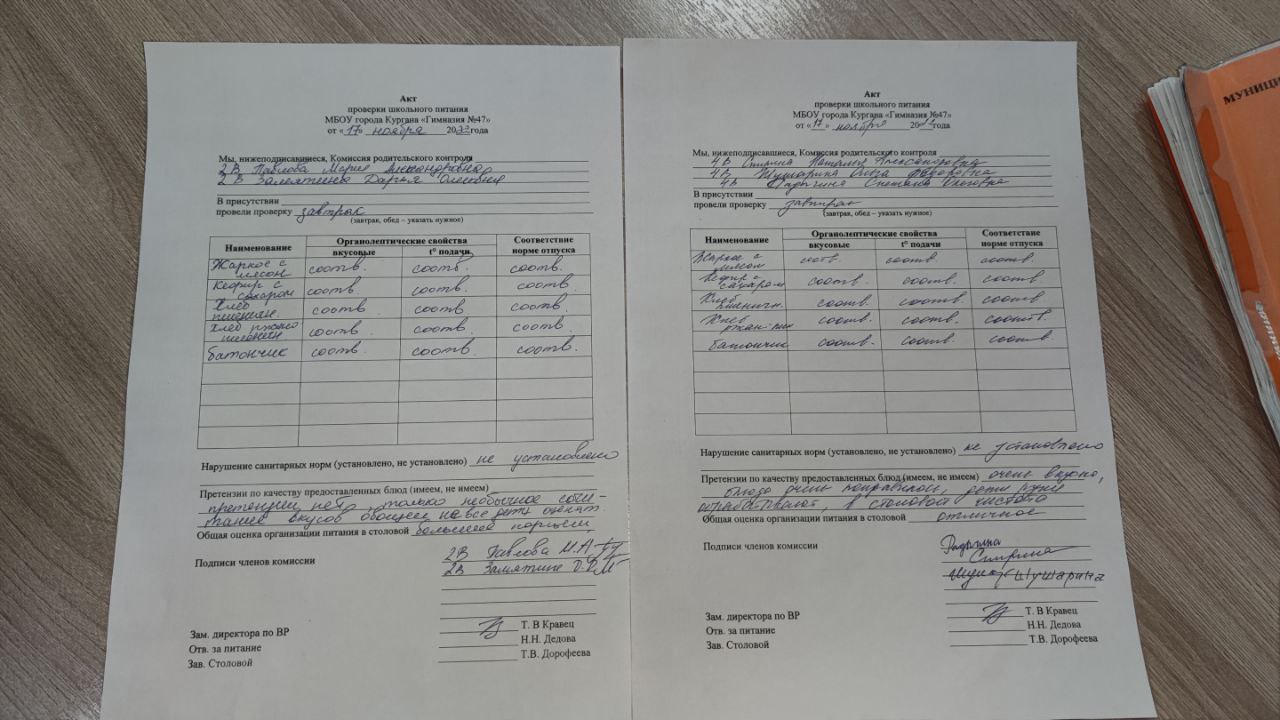 Акт
проверки школьного питания
МБОУ города Кургана «Гимназия №47»
от «17» ноября 2022 года
Мы, нижеподписавшиеся, Комиссия родительского контроля
2 В Павлова Мария Александровна
2 В Дарья Олеговна
В присутствии
провели проверку завтрак
(завтрак, обед – указать нужное)
Наименование Органолептические свойства Соответствие норме отпуска
вкусовые t° подачи
Жаркое с мясом соотв. соотв. соотв.
Кефир с сахаром соотв. соотв. соотв.
Хлеб пшеничн. соотв. соотв. соотв.
Хлеб ржано пшеничн. соотв. соотв. соотв.
батончик соотв. соотв. соотв.
Нарушение санитарных норм (установлено, не установлено) не установлено
Претензии по качеству предоставленных блюд (имеем, не имеем)
претензий нет, только необычное соче-
тание вкусов не все дети оценят.
Общая оценка организации питания в столовой большие порции
Подписи членов комиссии 2В Павлова М.А.
2В
Зам. директора по ВР Т. В Кравец
Отв. за питание Н.Н. Дедова
Зав. Столовой Т.В. Дорофеева
Акт
проверки школьного питания
МБОУ города Кургана «Гимназия №47»
от «17» ноября 20 года
Мы, нижеподписавшиеся, Комиссия родительского контроля
4 В Наталья Александровна
4В Шушарина Ольга
4В Светлана Олеговна
В присутствии
провели проверку завтрак
(завтрак, обед – указать нужное)
Наименование Органолептические свойства Соответствие норме отпуска
вкусовые t° подачи
Жаркое с мясом соотв. соотв. соотв.
Кефир с сахаром соотв. соотв. соотв.
Хлеб пшеничн. соотв. соотв. соотв.
Хлеб соотв. соотв. соотв.
батончик соотв. соотв. соотв.
Нарушение санитарных норм (установлено, не установлено) не установлено
Претензии по качеству предоставленных блюд (имеем, не имеем) очень вкусно,
блюдо очень понравилось, дети
в столовой чистота
Общая оценка организации питания в столовой отличное
Подписи членов комиссии
Шушарина
Зам. директора по ВР Т. В Кравец
Отв. за питание Н.Н. Дедова
Зав. Столовой Т.В. Дорофеева
МУНИЦИ